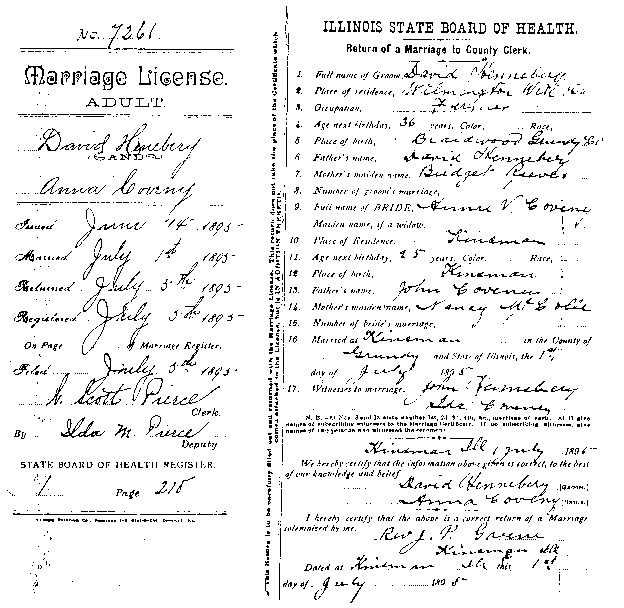 No. 7261
Marriage License.
ADULT.
David Henebery
AND
Anna Coveny
Issued June 14 1895
Married July 1st 1895
Returned July 5th 1895
Registered July 5th 1895
On Page of Marriage Register.
Filed July 5th 1895
A. Scott Pierce
Clerk.
By Ilda M. Pierce
Deputy
STATE BOARD OF HEALTH REGISTER.
1 Page 215
This Return is to be carefully filled out and returned with the Marriage License. This return does not take the place of the Certificate which comes attached to the License, but is IN ADDITION THERETO.
ILLINOIS STATE BOARD OF HEALTH.
Return of a Marriage to County Clerk.
1. Full name of Groom, David Henneberg
2. Place of residence, Wilmington Will Co
3. Occupation, Farmer
4. Age next birthday, 36 years. Color, Race,
5. Place of birth, Braidwood Grundy Co
6. Father's name, David Henneberg
7. Mother's maiden name, Bridget
8. Number of groom's marriage,
9. Full name of BRIDE, Annie V Coveny
Maiden name, if a widow.
10. Place of Residence. Kinsman
11. Age next birthday, 25 years. Color, Race,
12. Place of birth, Kinsman
13. Father's name, John Coveney
14. Mother's maiden name, Nancy
15. Number of bride's marriage,
16. Married at Kinsman in the County of
Grundy and State of Illinois, the 1st
day of July 1895
17. Witnesses to marriage, John
Ida Coveny
N. B.—At Nos.
names of subscribing witnesses to the Marriage Certificate. If no subscribing witnesses, give
Kinsman Ill 1 July 1895
We hereby certify that the information above given is correct, to the best
of our knowledge and belief
David Henneberg [Groom.]
Anna Coveny [Bride.]
I hereby certify that the above is a correct return of a Marriage
solemnized by me.
Rev J. P.
Kinsman Ill
Dated at Kinsman Ill this 1st
day of July 1895